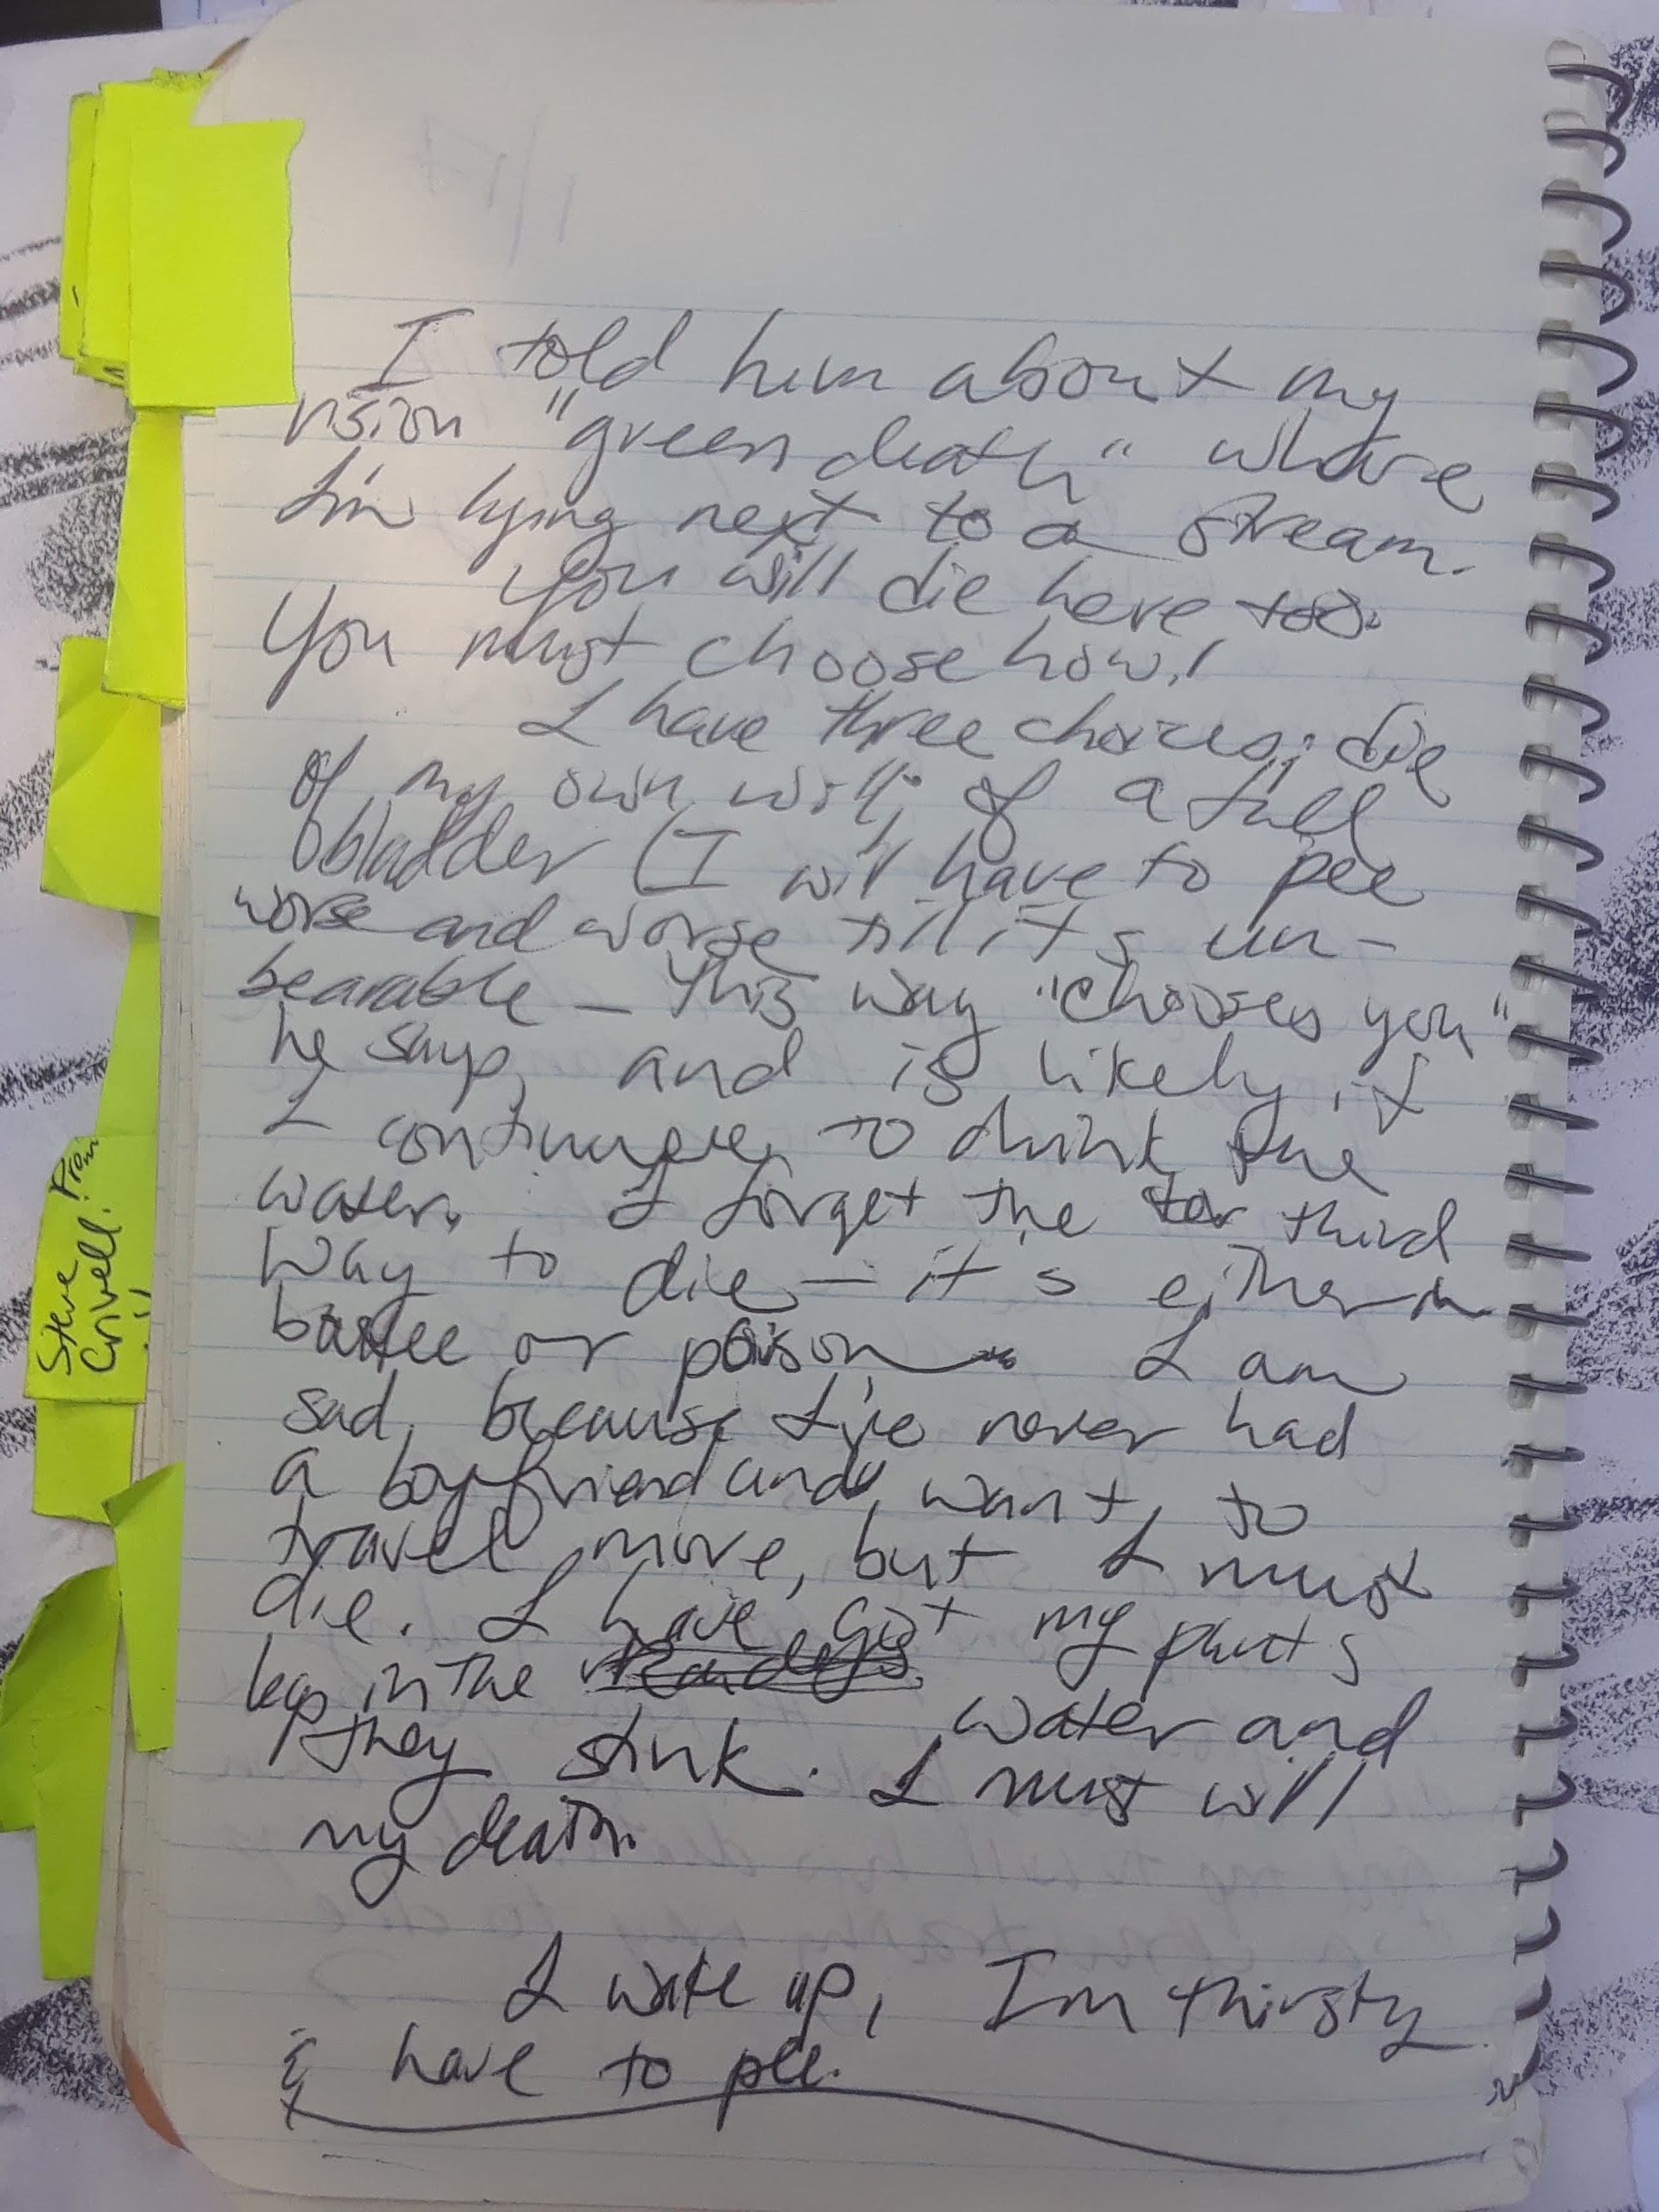 I told him about my
vision "green death" where
I'm lying next to a stream.
You will die here too.
You must choose how!
I have three choices: die
of my own will; of a full
bladder (I will have to pee
worse and worse till it's un-
bearable — this way "chooses you"
he says, and is likely if
I continue to drink the
water. I forget the third
way to die — it's either in
battle or poison. I am
sad because I've never had
a boyfriend and want to
travel more, but I must
die. I have got my pants
legs in the
water and
they stink. I must will
my death.
I wake up, I'm thirsty
& have to pee.
From
Steve
Crivell!